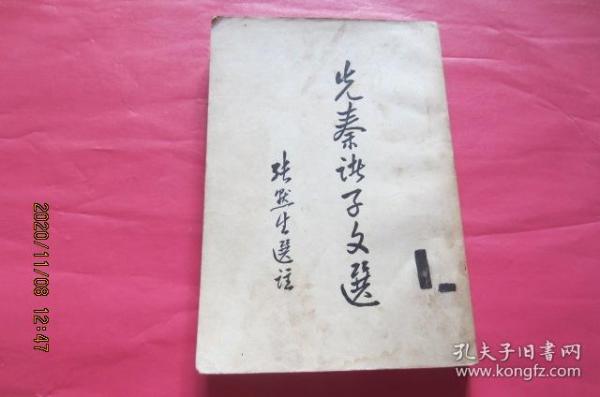 先秦诸子文選
张默生選註
2020/11/08 12:47
孔夫子旧书网
www.kongfz.com